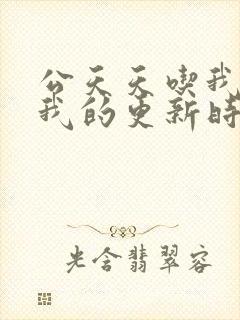 公天天喫我
我的更新時
光含翡翠容